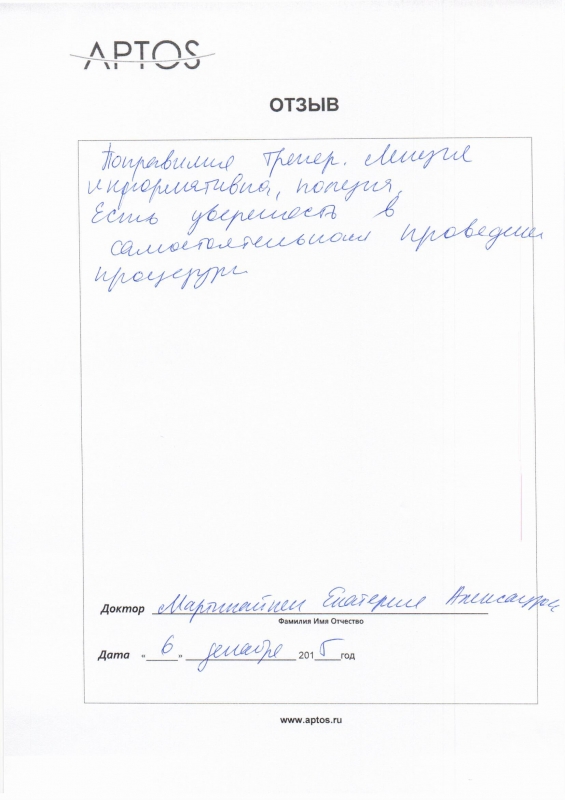 APTOS
ОТЗЫВ
Понравился тренер. Лекция
информативна, полезна,
Есть уверенность в
самостоятельном проведении
процедур
Доктор Екатерина Александров
Фамилия Имя Отчество
Дата "6" декабря 2015 год
www.aptos.ru